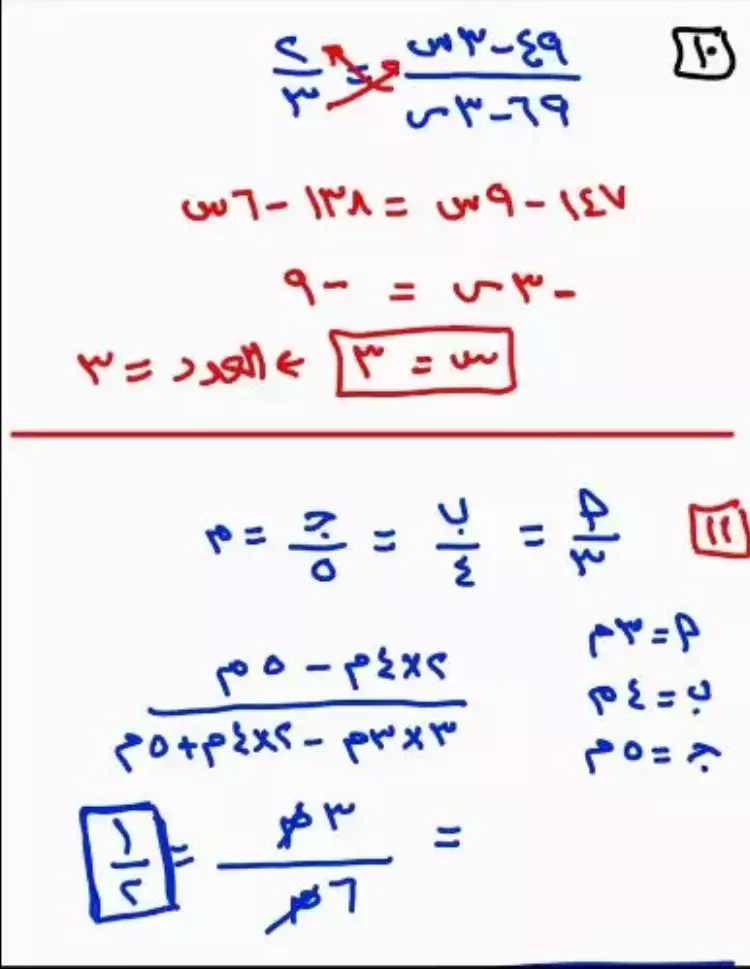 ١٠
٤٩ - ٣س / ٦٩ - ٣س = ٢ / ٣
١٤٧ - ٩س = ١٣٨ - ٦س
- ٣س = - ٩
س = ٣ ← العدد = ٣
١١
أ / ٣ = ب / ٤ = ج / ٥ = م
أ = ٣م
ب = ٤م
ج = ٥م
٢×٤م - ٥م / ٣×٣م - ٢×٤م + ٥م
= ٣م / ٦م = ١ / ٢